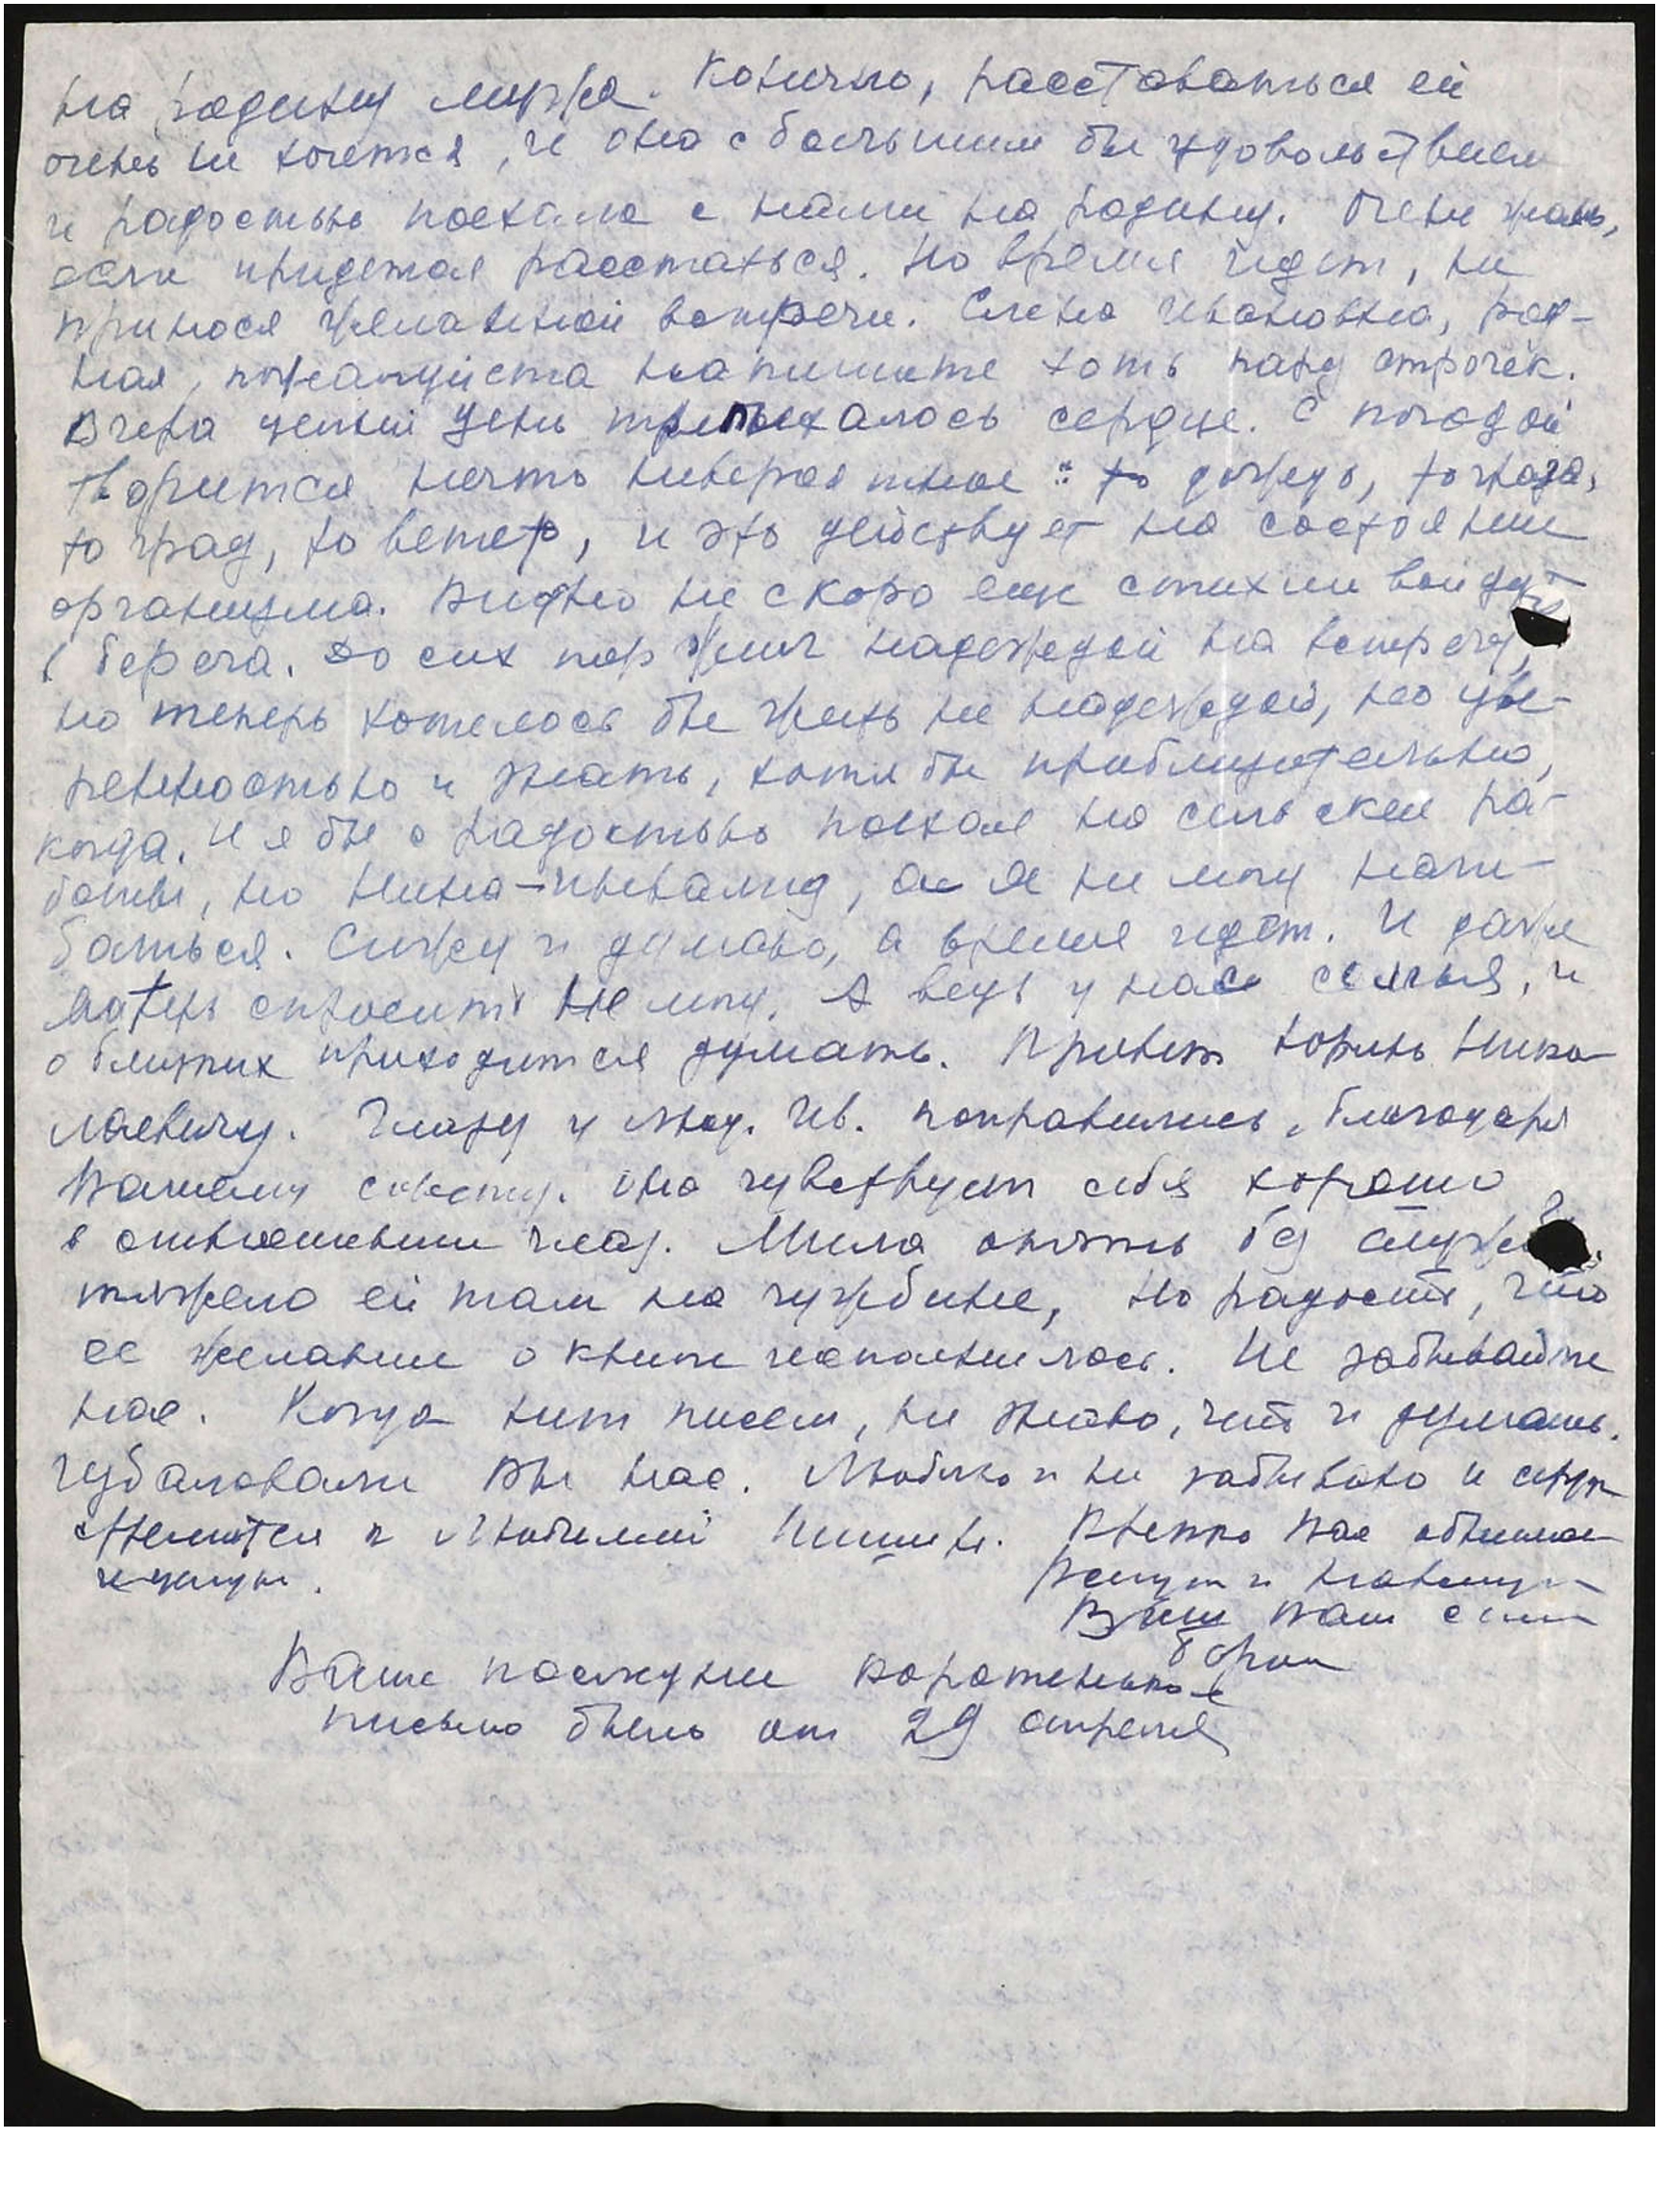 на родину мужа. Конечно, расставаться ей
очень не хочется, и она с большим бы удовольствием
и радостью поехала с нами на родину. Очень жаль,
если придется расстаться. Но время идет, не
принося желанной встречи. Елена Ивановна, род-
ная, пожалуйста напишите хоть пару строчек.
Вчера целый день трепыхалось сердце. С погодой
творится нечто невероятное: то дождь, то гроза,
то град, то ветер, и это действует на состояние
организма. Видно не скоро еще стихии войдут
в берега. До сих пор жили надеждой на встречу,
но теперь хотелось бы жить не надеждой, но уве-
ренностью и знать, хотя бы приблизительно,
когда. И я бы с радостью поехал на сельские ра-
боты, но Нина-инвалид, а я не могу наги-
баться. Сижу и думаю, а время идет. И даже
матерь спросить не могу. А ведь у нас семья, и
о близких приходится думать. Привет Юрию Нико-
лаевичу. Глазы у Люд. Ив. поправились, благодаря
Вашему совету. Она чувствует себя хорошо
в отношении глаз. Мила опять без
тяжело ей там на чужбине, но радость, что
ее желание о книге исполнилось. Не забывайте
нас. Когда нет писем, не знаю, что и думать.
избаловали Вы нас. Люблю и не забываю и сердце
стремится к Любимой Крепко Вас обнимаю
и целую.
Ваш
Борис
Ваше последнее коротенькое
письмо было от 29 апреля